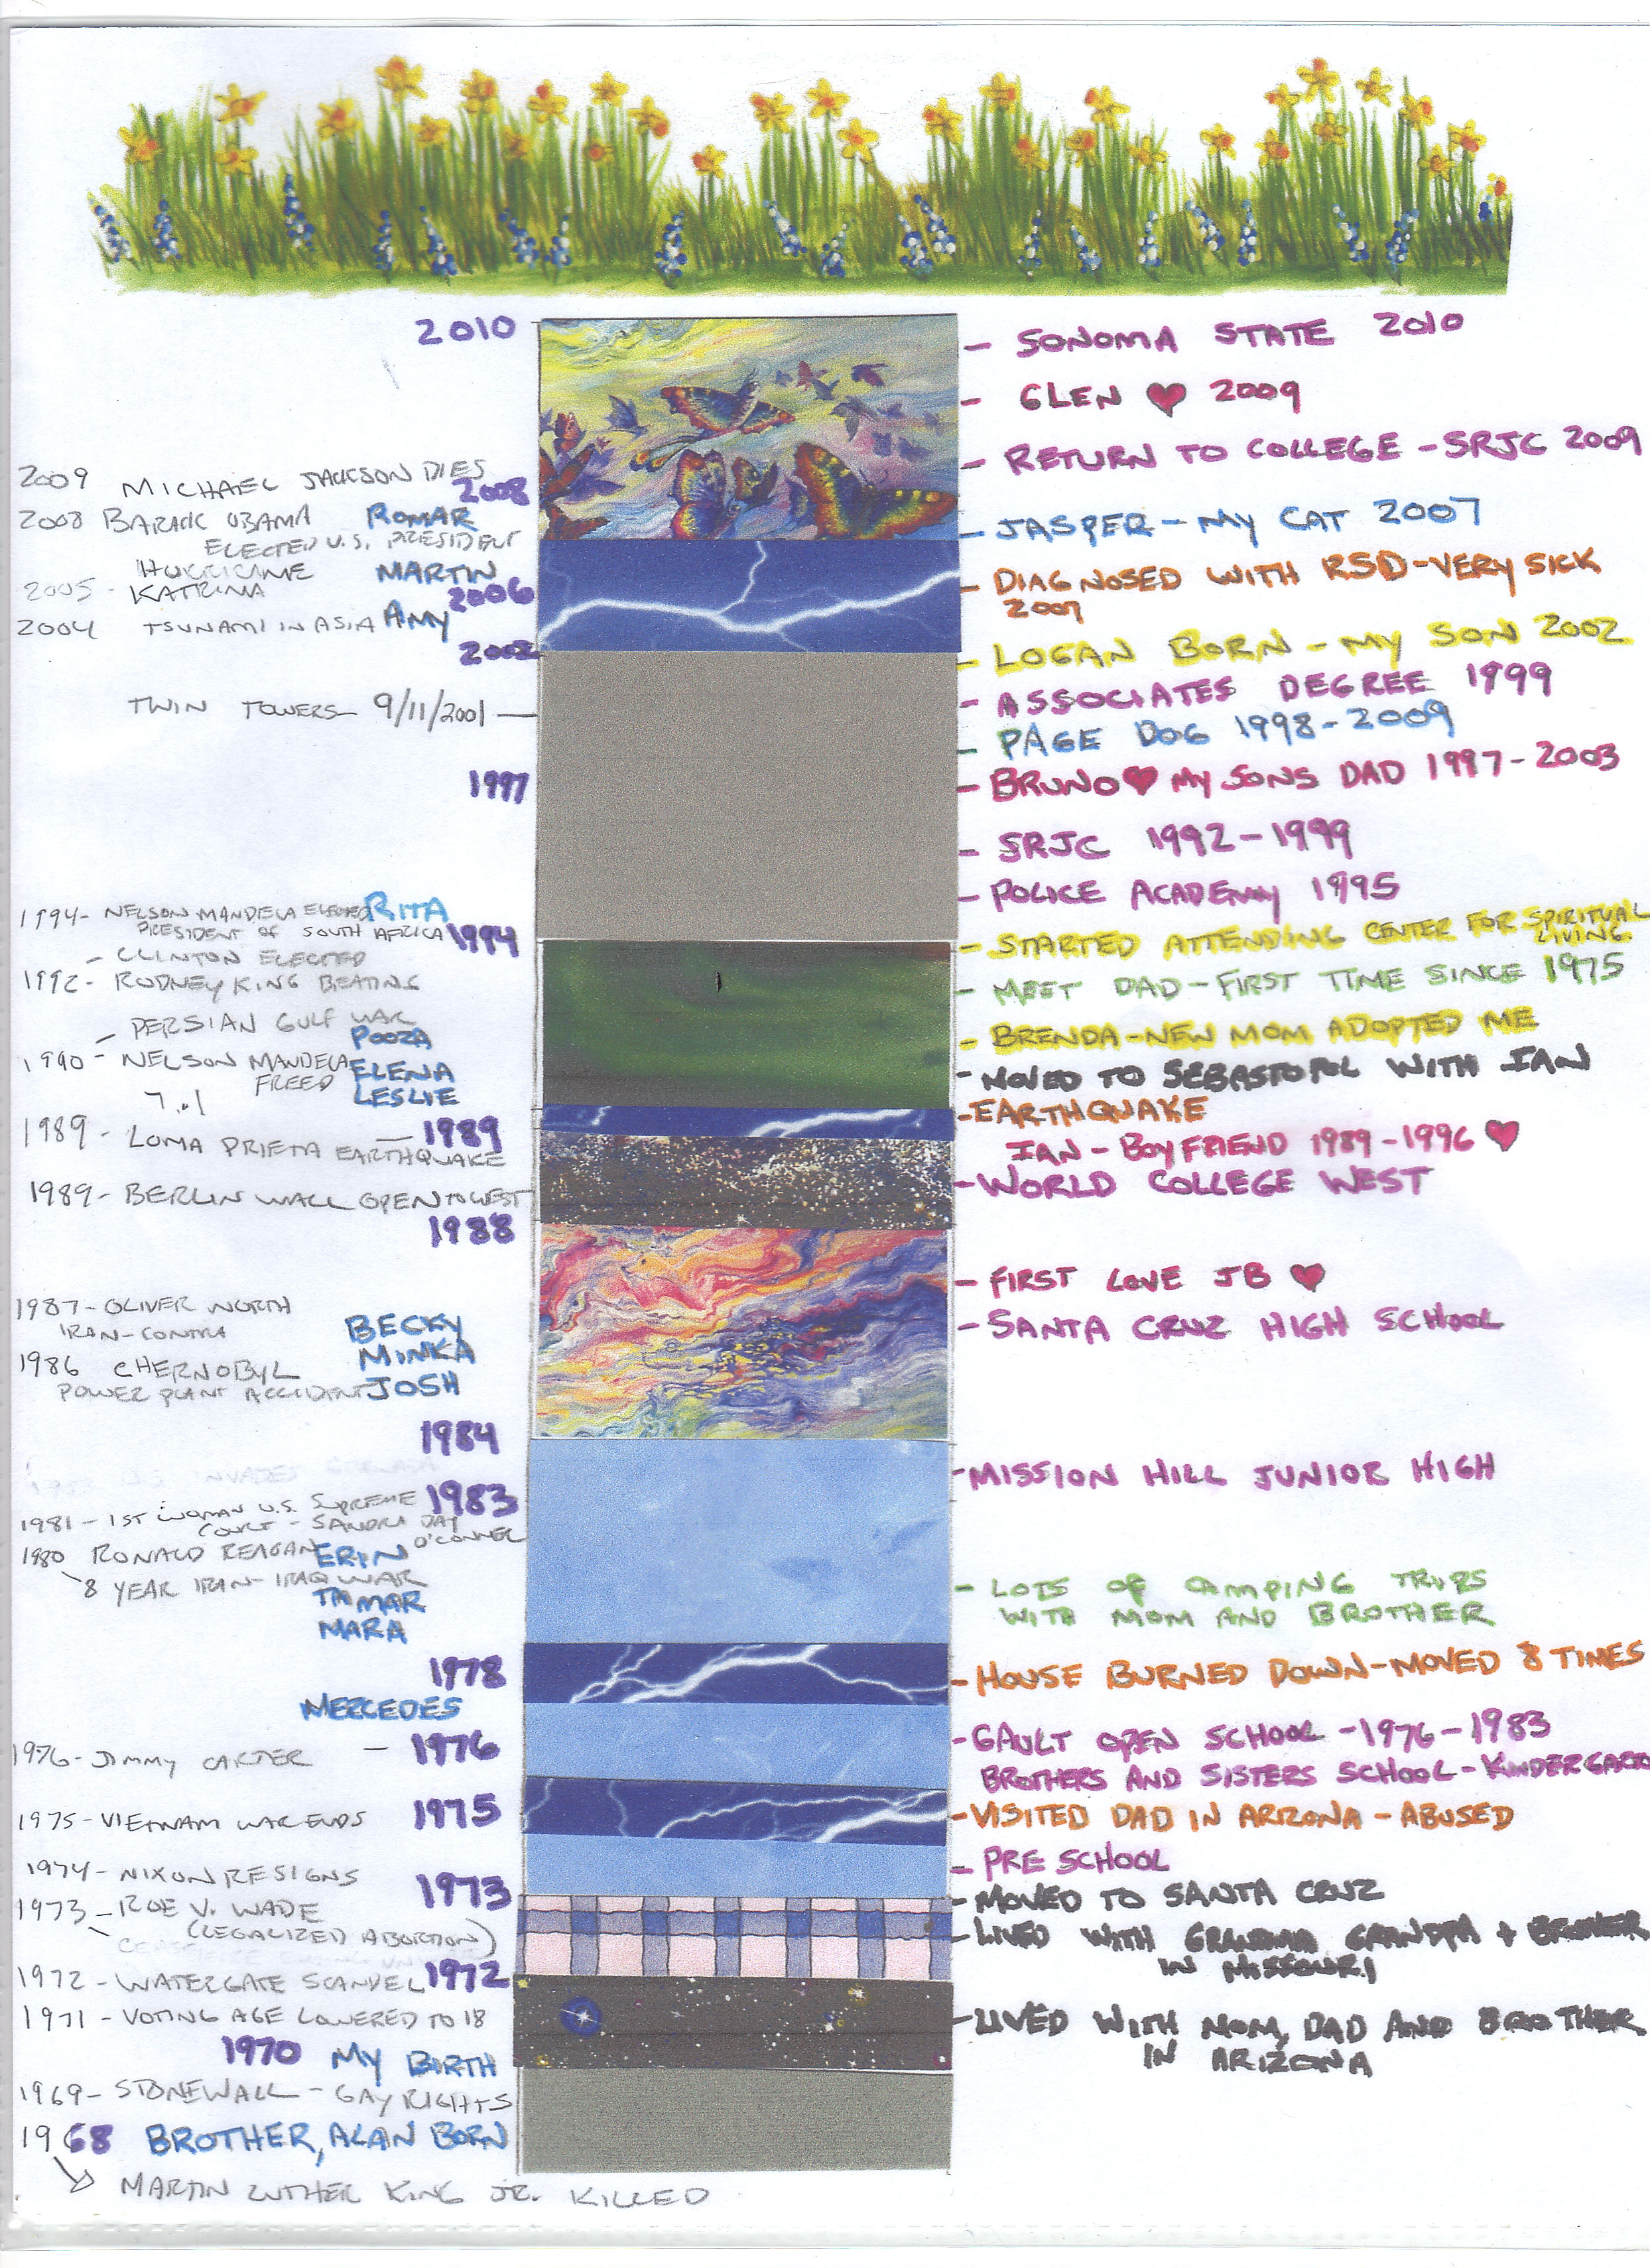 2010
- SONOMA STATE 2010
- GLEN ♥ 2009
- RETURN TO COLLEGE - SRJC 2009
2009 MICHAEL JACKSON DIES
2008
2008 BARACK OBAMA
ELECTED U.S. PRESIDENT
ROMAR
- JASPER - MY CAT 2007
HURRICANE
2005 - KATRINA
MARTIN
2006
- DIAGNOSED WITH RSD - VERY SICK
2007
2004 TSUNAMI IN ASIA
AMY
2002
- LOGAN BORN - MY SON 2002
- ASSOCIATES DEGREE 1999
TWIN TOWERS - 9/11/2001 -
- PAGE DOG 1998 - 2009
1997
- BRUNO ♥ MY SONS DAD 1997 - 2003
- SRJC 1992 - 1999
- POLICE ACADEMY 1995
1994 - NELSON MANDELA ELECTED
PRESIDENT OF SOUTH AFRICA
RITA
1994
- STARTED ATTENDING CENTER FOR SPIRITUAL
LIVING
- CLINTON ELECTED
1992 - RODNEY KING BEATING
- MEET DAD - FIRST TIME SINCE 1975
- PERSIAN GULF WAR
POOZA
- BRENDA - NEW MOM ADOPTED ME
1990 - NELSON MANDELA
FREED
ELENA
LESLIE
- MOVED TO SEBASTOPOL WITH IAN
7.1
1989 - LOMA PRIETA EARTHQUAKE
- 1989
- EARTHQUAKE
IAN - BOYFRIEND 1989 - 1996 ♥
1989 - BERLIN WALL OPEN TO WEST
- WORLD COLLEGE WEST
1988
- FIRST LOVE JB ♥
1987 - OLIVER NORTH
IRAN - CONTRA
BECKY
MINKA
JOSH
- SANTA CRUZ HIGH SCHOOL
1986 CHERNOBYL
POWER PLANT ACCIDENT
1984
- MISSION HILL JUNIOR HIGH
INVADES
1983
1981 - 1ST WOMAN U.S. SUPREME
COURT - SANDRA DAY
O'CONNER
1980 RONALD REAGAN
8 YEAR IRAN - IRAQ WAR
ERIN
TAMAR
MARA
- LOTS OF CAMPING TRIPS
WITH MOM AND BROTHER
1978
- HOUSE BURNED DOWN - MOVED 8 TIMES
MERCEDES
1976 - JIMMY CARTER
- 1976
- GAULT OPEN SCHOOL - 1976 - 1983
BROTHERS AND SISTERS SCHOOL -
1975 - VIETNAM WAR ENDS
1975
- VISITED DAD IN ARIZONA - ABUSED
1974 - NIXON RESIGNS
- PRE SCHOOL
1973
- MOVED TO SANTA CRUZ
1973 - ROE V. WADE
(LEGALIZED ABORTION)
- LIVED WITH GRANDMA GRANDPA + BROTHER
IN MISSOURI
1972 - WATERGATE SCANDEL
1972
1971 - VOTING AGE LOWERED TO 18
- LIVED WITH MOM, DAD AND BROTHER
IN ARIZONA
1970 MY BIRTH
1969 - STONEWALL - GAY RIGHTS
1968 BROTHER, ALAN BORN
MARTIN LUTHER KING JR. KILLED